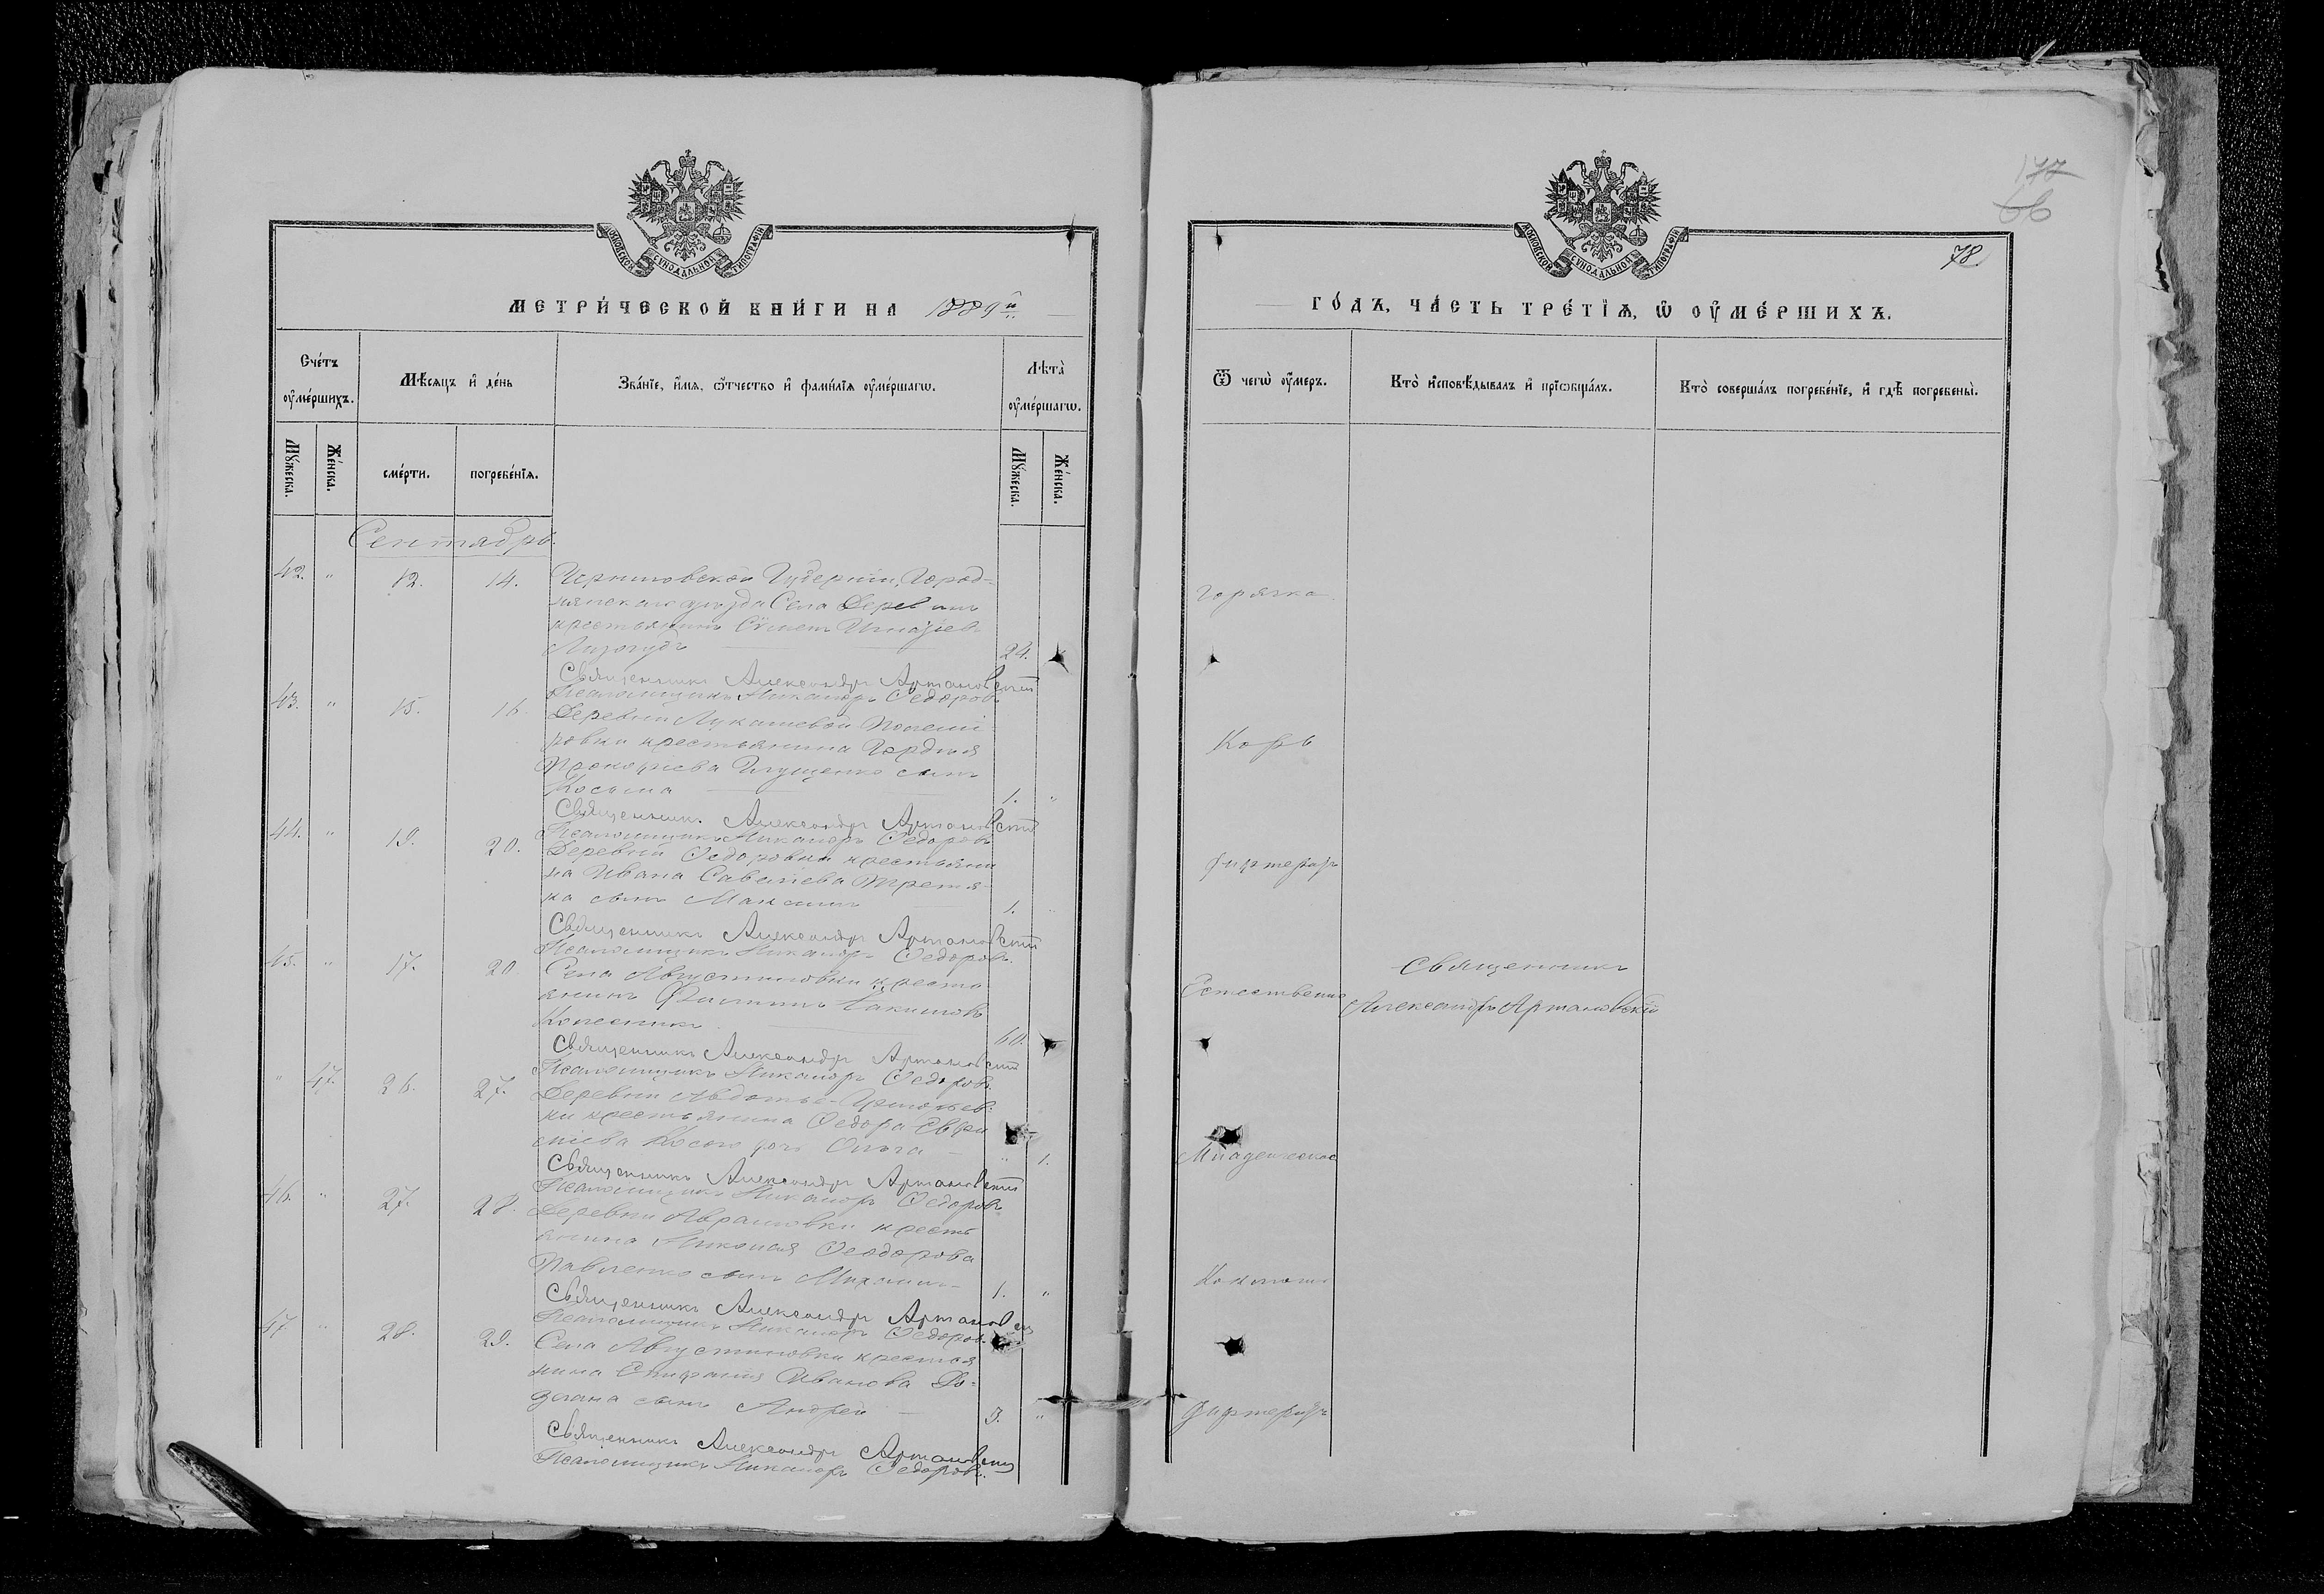 МОСКОВСКОЙ СѴНОДАЛЬНОЙ ТИПОГРАФІИ
МЕТРИ́ЧЕСКОЙ КНИ́ГИ НА 1889 й
Сче́тъ оу҆ме́ршихъ.
Мѣ́сяцъ и҆ де́нь
Зва́нїе, и҆́мя, ѻ҆́тчество и҆ фами́лїя оу҆ме́ршагѡ.
Лѣта̀ оу҆ме́ршагѡ.
Мꙋ́жеска.
Же́нска.
сме́рти.
погребе́нїѧ.
Мꙋ́жеска.
Же́нска.
Сентябрь.
42. " 12. 14. Черниговской Губерніи, Город-
нянскаго уезда Села Деревинъ
крестьянинъ Сѵмеонъ Игнатіевъ
Лизогубъ 24.
Священникъ Александръ Артановскій
Псаломщикъ Никаноръ Ѳедоровъ
43. " 15. 16. Деревни Лукашевой
крестьянина Гордѣя
Прокофіева Глущенко сынъ
Косьма 1. "
Священникъ Александръ Артановскій
Псаломщикъ Никаноръ Ѳедоровъ
44. " 19. 20. Деревни Ѳедоровки крестьяни
на Ивана Савеліева Третья-
ка сынъ Максимъ 1. "
Священникъ Александръ Артановскій
Псаломщикъ Никаноръ Ѳедоровъ.
45. " 17. 20 Села Августиновки кресть
янинъ Филиппъ Іакимовъ
Колесникъ 60.
Священникъ Александръ Артановскій
Псаломщикъ Никаноръ Ѳедоровъ.
" 47. 26. 27. Деревни
ки крестьянина Ѳедора
Косого дочь Ольга " 1.
Священникъ Александръ Артановскій
Псаломщикъ Никаноръ Ѳедоровъ
46. " 27. 28. Деревни Аврамовки кресть
янина Николая Ѳеодорова
Павленко сынъ Михаилъ 1. "
Священникъ Александръ Артановскій
Псаломщикъ Никаноръ Ѳедоровъ.
47 " 28. 29. Села Августиновки крестья
нина Епифанія Иванова
сынъ Андрей 3. "
Священникъ Александръ Артановскій
Псаломщикъ Никаноръ Ѳедоровъ.
177
66
78
МОСКОВСКОЙ СѴНОДАЛЬНОЙ ТИПОГРАФІИ
ГО́ДЪ, ЧА́СТЬ ТРЕ́ТЇѦ, Ѡ҆ ОУ҆МЕ́РШИХЪ.
Ѿ чегѡ̀ оу҆́меръ.
Кто̀ и҆сповѣ́дывалъ и҆ прїѡбща́лъ.
Кто̀ соверша́лъ погребе́нїе, и҆ гдѣ̀ погребены̀.
Горячка
Корь
Дифтеритъ
Естественно
Священникъ
Александръ Артановскій
Младенческое
Коклюшъ
Дифтеритъ